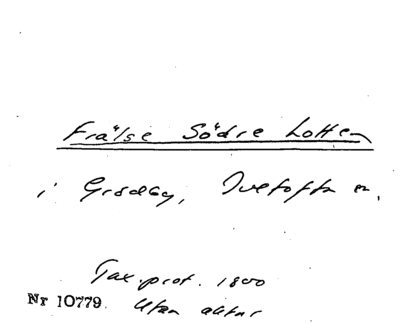 Frälse Södre Lotten
i Grödby, Ivetofta sn.
Tax.prot. 1800
Nr 10779. Utan aktnr